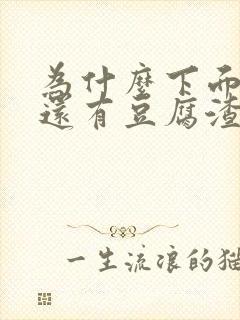 為什麼下而
還有豆腐渣
一生流浪的猫